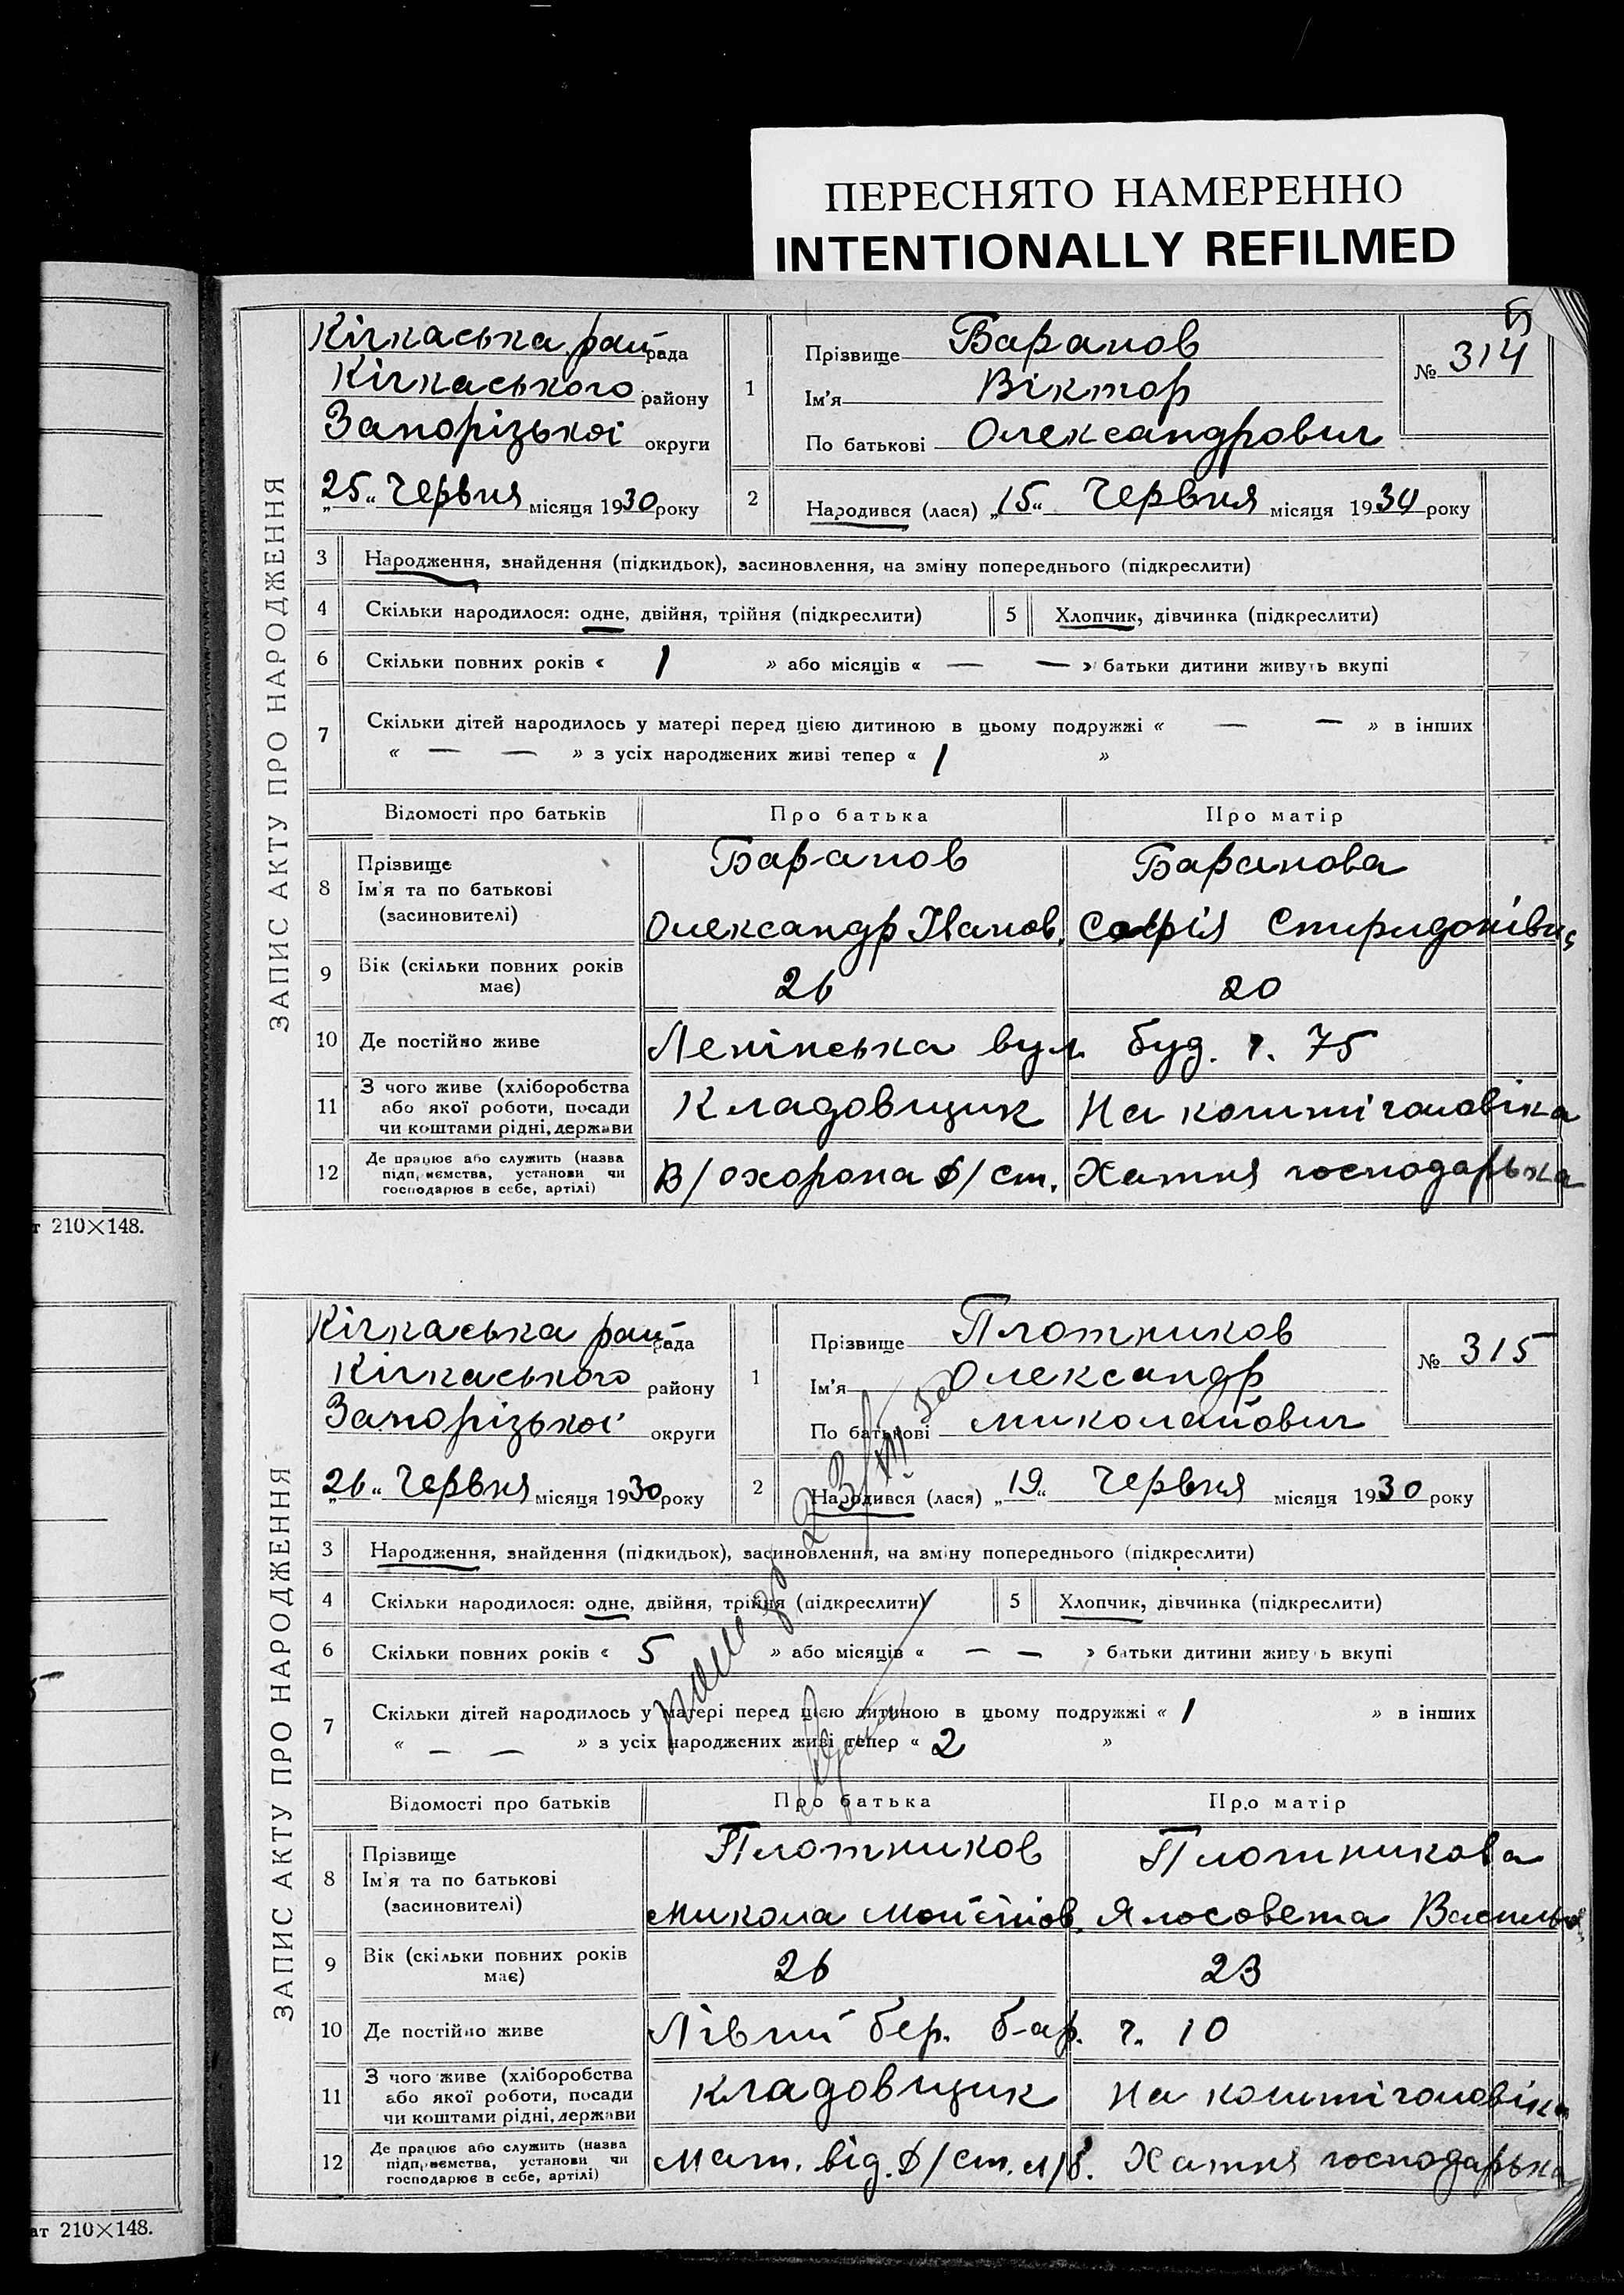 ПЕРЕСНЯТО НАМЕРЕННО
INTENTIONALLY REFILMED
ЗАПИС АКТУ ПРО НАРОДЖЕННЯ
Кічкаська рай рада
Кічкаського району
Запорізької округи
„25“ Червня місяця 1930 року
1
Прізвище Баранов
Ім'я Віктор
По батькові Олександрович
№ 314
2 Народився (лася) „15“ Червня місяця 1930 року
3 Народження, знайдення (підкидьок), засиновлення, на зміну попереднього (підкреслити)
4 Скільки народилося: одне, двійня, трійня (підкреслити) 5 Хлопчик, дівчинка (підкреслити)
6 Скільки повних років « 1 » або місяців « — — » батьки дитини живуть вкупі
7 Скільки дітей народилось у матері перед цією дитиною в цьому подружжі « — — » в інших
« — — » з усіх народжених живі тепер « 1 »
Відомості про батьків Про батька Про матір
8 Прізвище
Ім'я та по батькові
(засиновителі)
Баранов
Олександр Іванов.
Баранова
Софія Спиридонівн.
9 Вік (скільки повних років має) 26 20
10 Де постійно живе Ленінська вул. буд. ч. 75
11 З чого живе (хліборобства
або якої роботи, посади
чи коштами рідні, держави
Кладовщик На кошти чоловіка
12 Де працює або служить (назва
підприємства, установи чи
господарює в себе, артілі)
В/охорона Д/ст. Хатня господарька
т 210×148.
ЗАПИС АКТУ ПРО НАРОДЖЕННЯ
Кічкаська рай рада
Кічкаського району
Запорізької округи
„26“ Червня місяця 1930 року
1
Прізвище Плотников
Ім'я Олександр
По батькові Миколайович
№ 315
2 Народився (лася) „19“ Червня місяця 1930 року
3 Народження, знайдення (підкидьок), засиновлення, на зміну попереднього (підкреслити)
4 Скільки народилося: одне, двійня, трійня (підкреслити) 5 Хлопчик, дівчинка (підкреслити)
6 Скільки повних років « 5 » або місяців « — — » батьки дитини живуть вкупі
7 Скільки дітей народилось у матері перед цією дитиною в цьому подружжі « 1 » в інших
« — — » з усіх народжених живі тепер « 2 »
Відомості про батьків Про батька Про матір
8 Прізвище
Ім'я та по батькові
(засиновителі)
Плотников
Микола
Плотникова
Ялосовета Васильв.
9 Вік (скільки повних років має) 26 23
10 Де постійно живе Лівий бер. б-ар. ч. 10
11 З чого живе (хліборобства
або якої роботи, посади
чи коштами рідні, держави
кладовщик На кошти чоловіка
12 Де працює або служить (назва
підприємства, установи чи
господарює в себе, артілі)
Мат. від. Д/ст. л/б. Хатня господарька
ат 210×148.